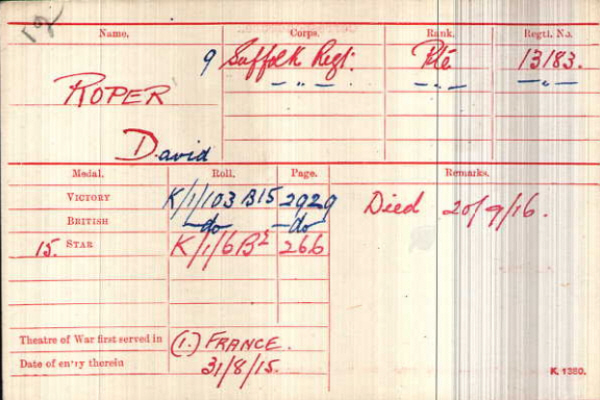 12
Name. Corps. Rank. Regtl. No.
9 Suffolk Regt. Pte 13183.
ROPER — " — — " — — " —
David
Medal. Roll. Page. Remarks.
VICTORY K/1/103 B15 2929 Died 20/9/16.
BRITISH —do— —do
15. STAR K/1/6 B2 266
Theatre of War first served in (1.) FRANCE.
Date of entry therein 31/8/15.
K. 1380.